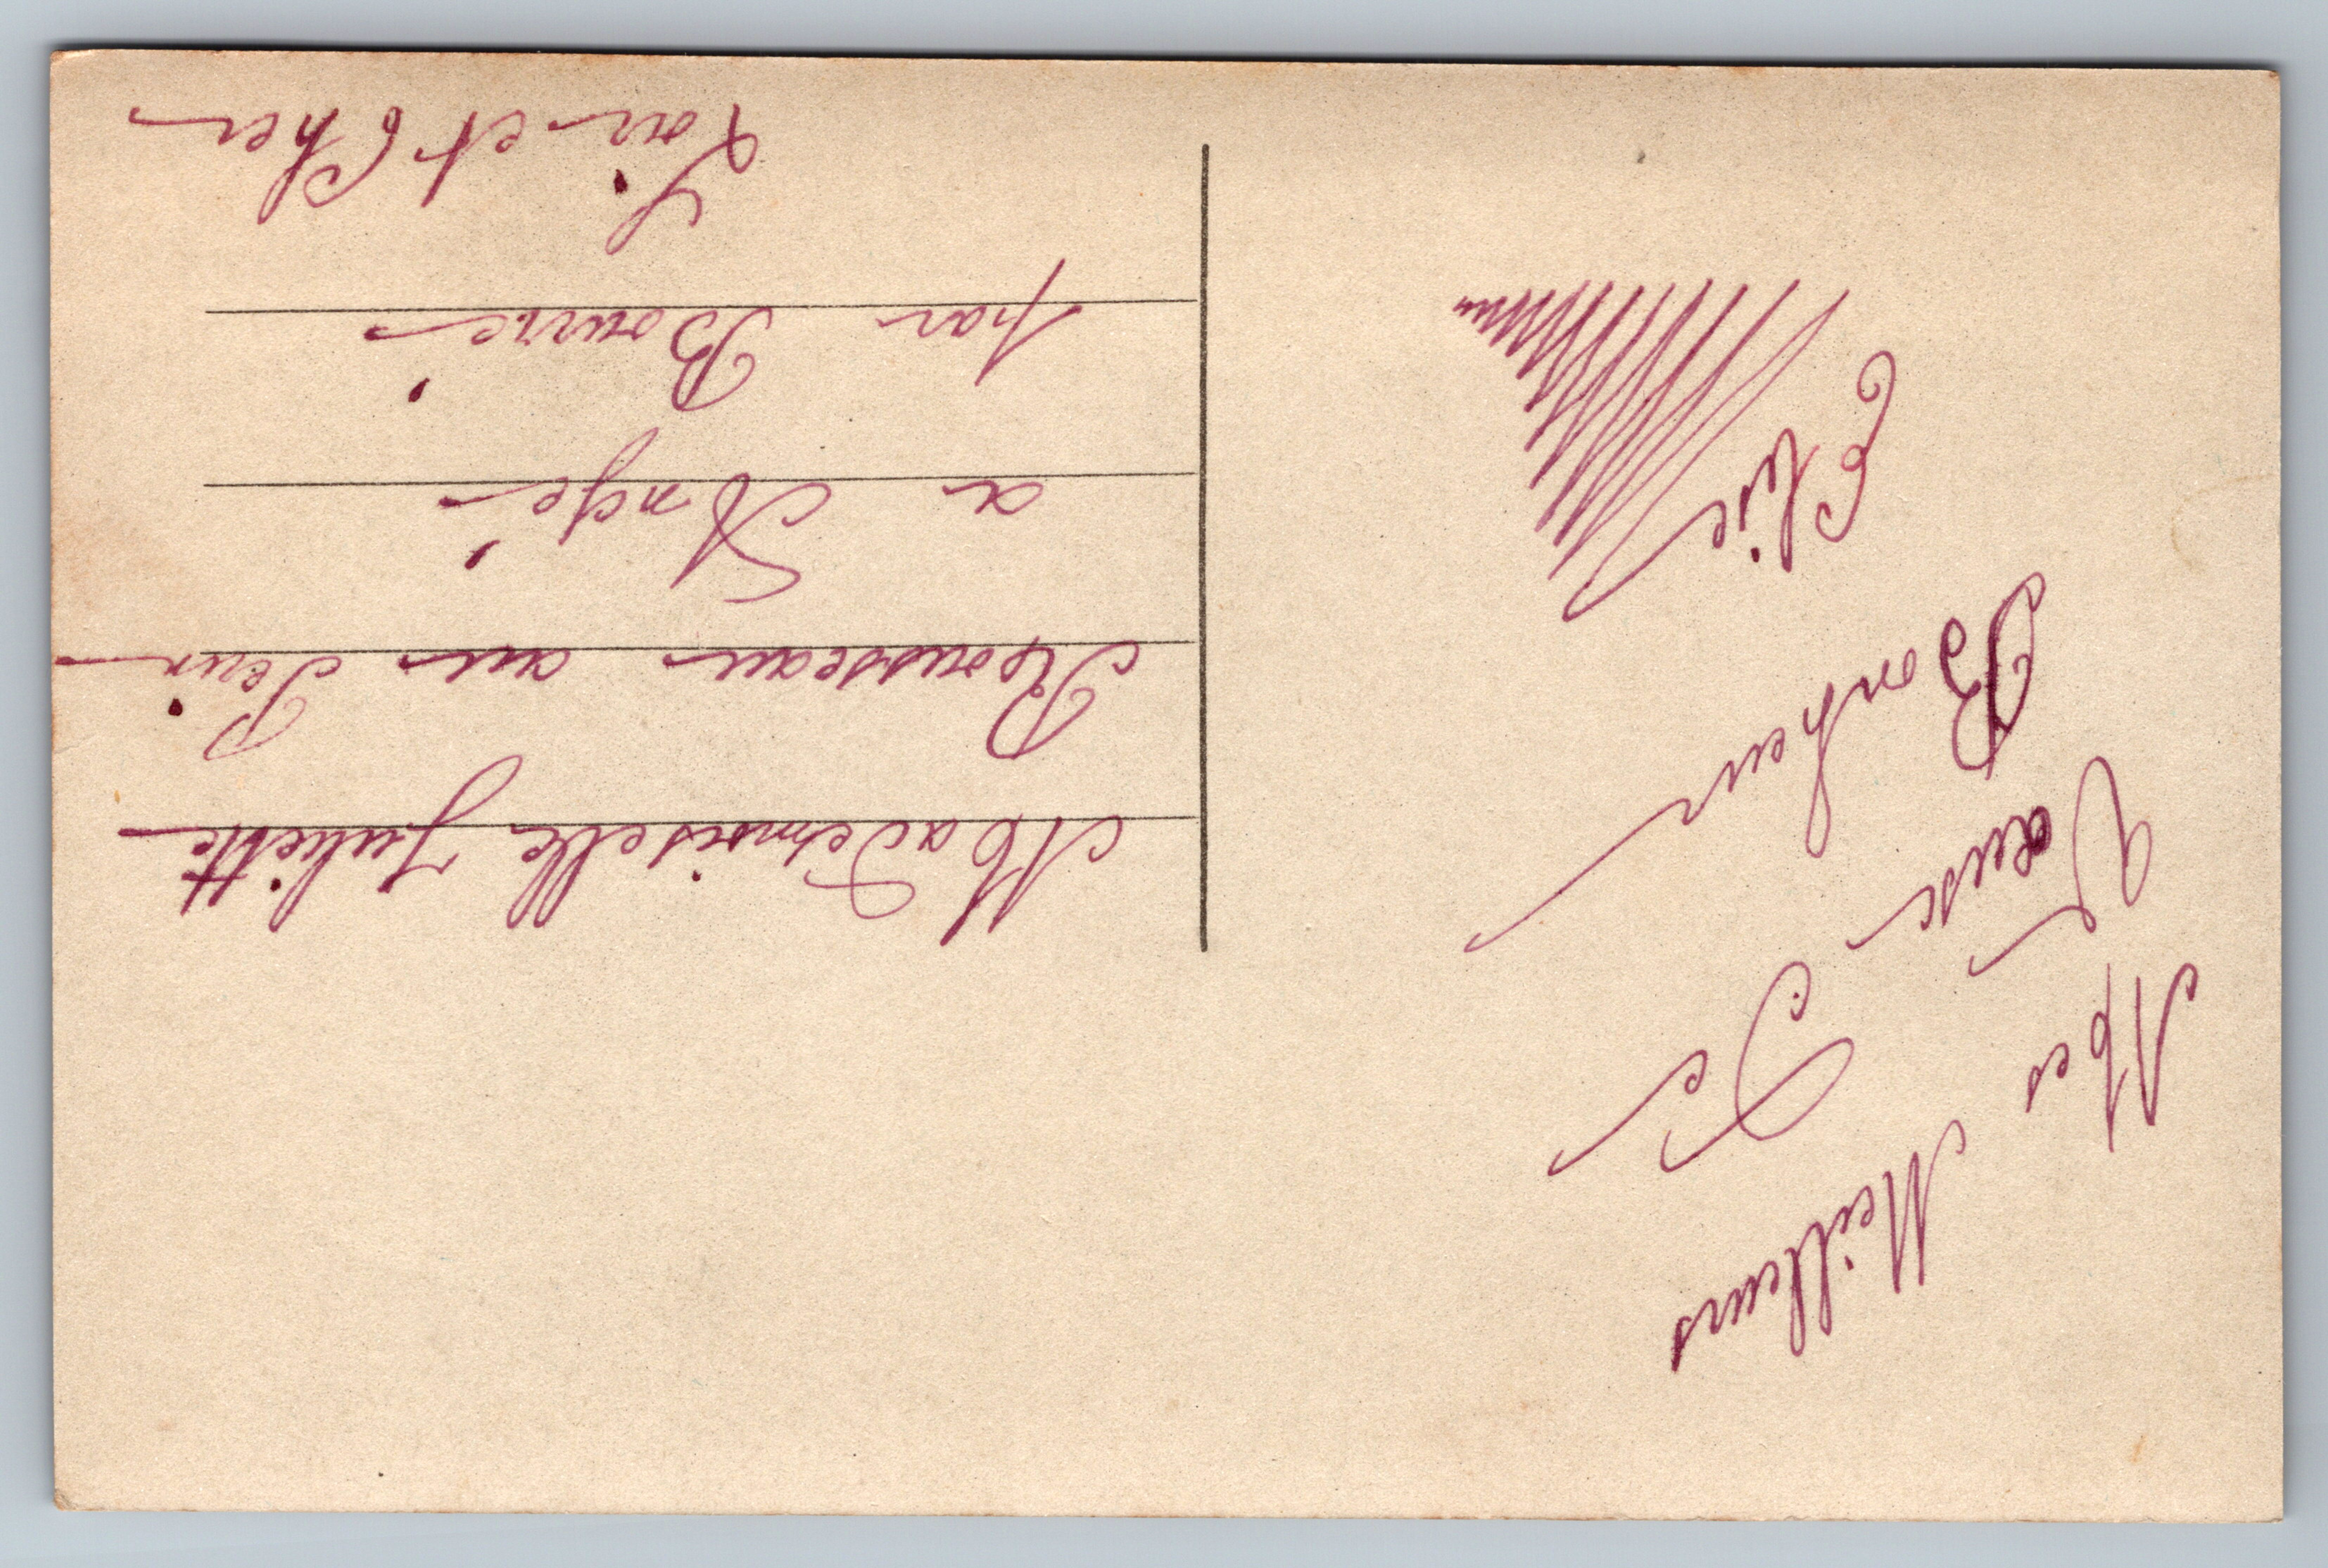 Mes Meilleurs
Vœux de
Bonheur
Elise
Mademoiselle Juliette
Rousseau au Perin
a Angé
par Bourré
Loir et Cher